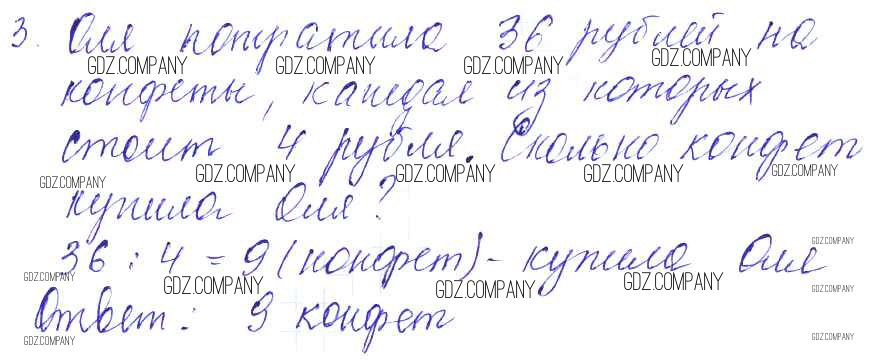 3. Оля потратила 36 рублей на
GDZ.COMPANY GDZ.COMPANY GDZ.COMPANY GDZ.COMPANY
конфеты, каждая из которых
стоит 4 рубля. Сколько конфет
GDZ.COMPANY GDZ.COMPANY GDZ.COMPANY GDZ.COMPANY GDZ.COMPANY
купила Оля?
36 : 4 = 9 (конфет) - купила Оля
GDZ.COMPANY GDZ.COMPANY GDZ.COMPANY GDZ.COMPANY GDZ.COMPANY GDZ.COMPANY
Ответ: 9 конфет
GDZ.COMPANY GDZ.COMPANY